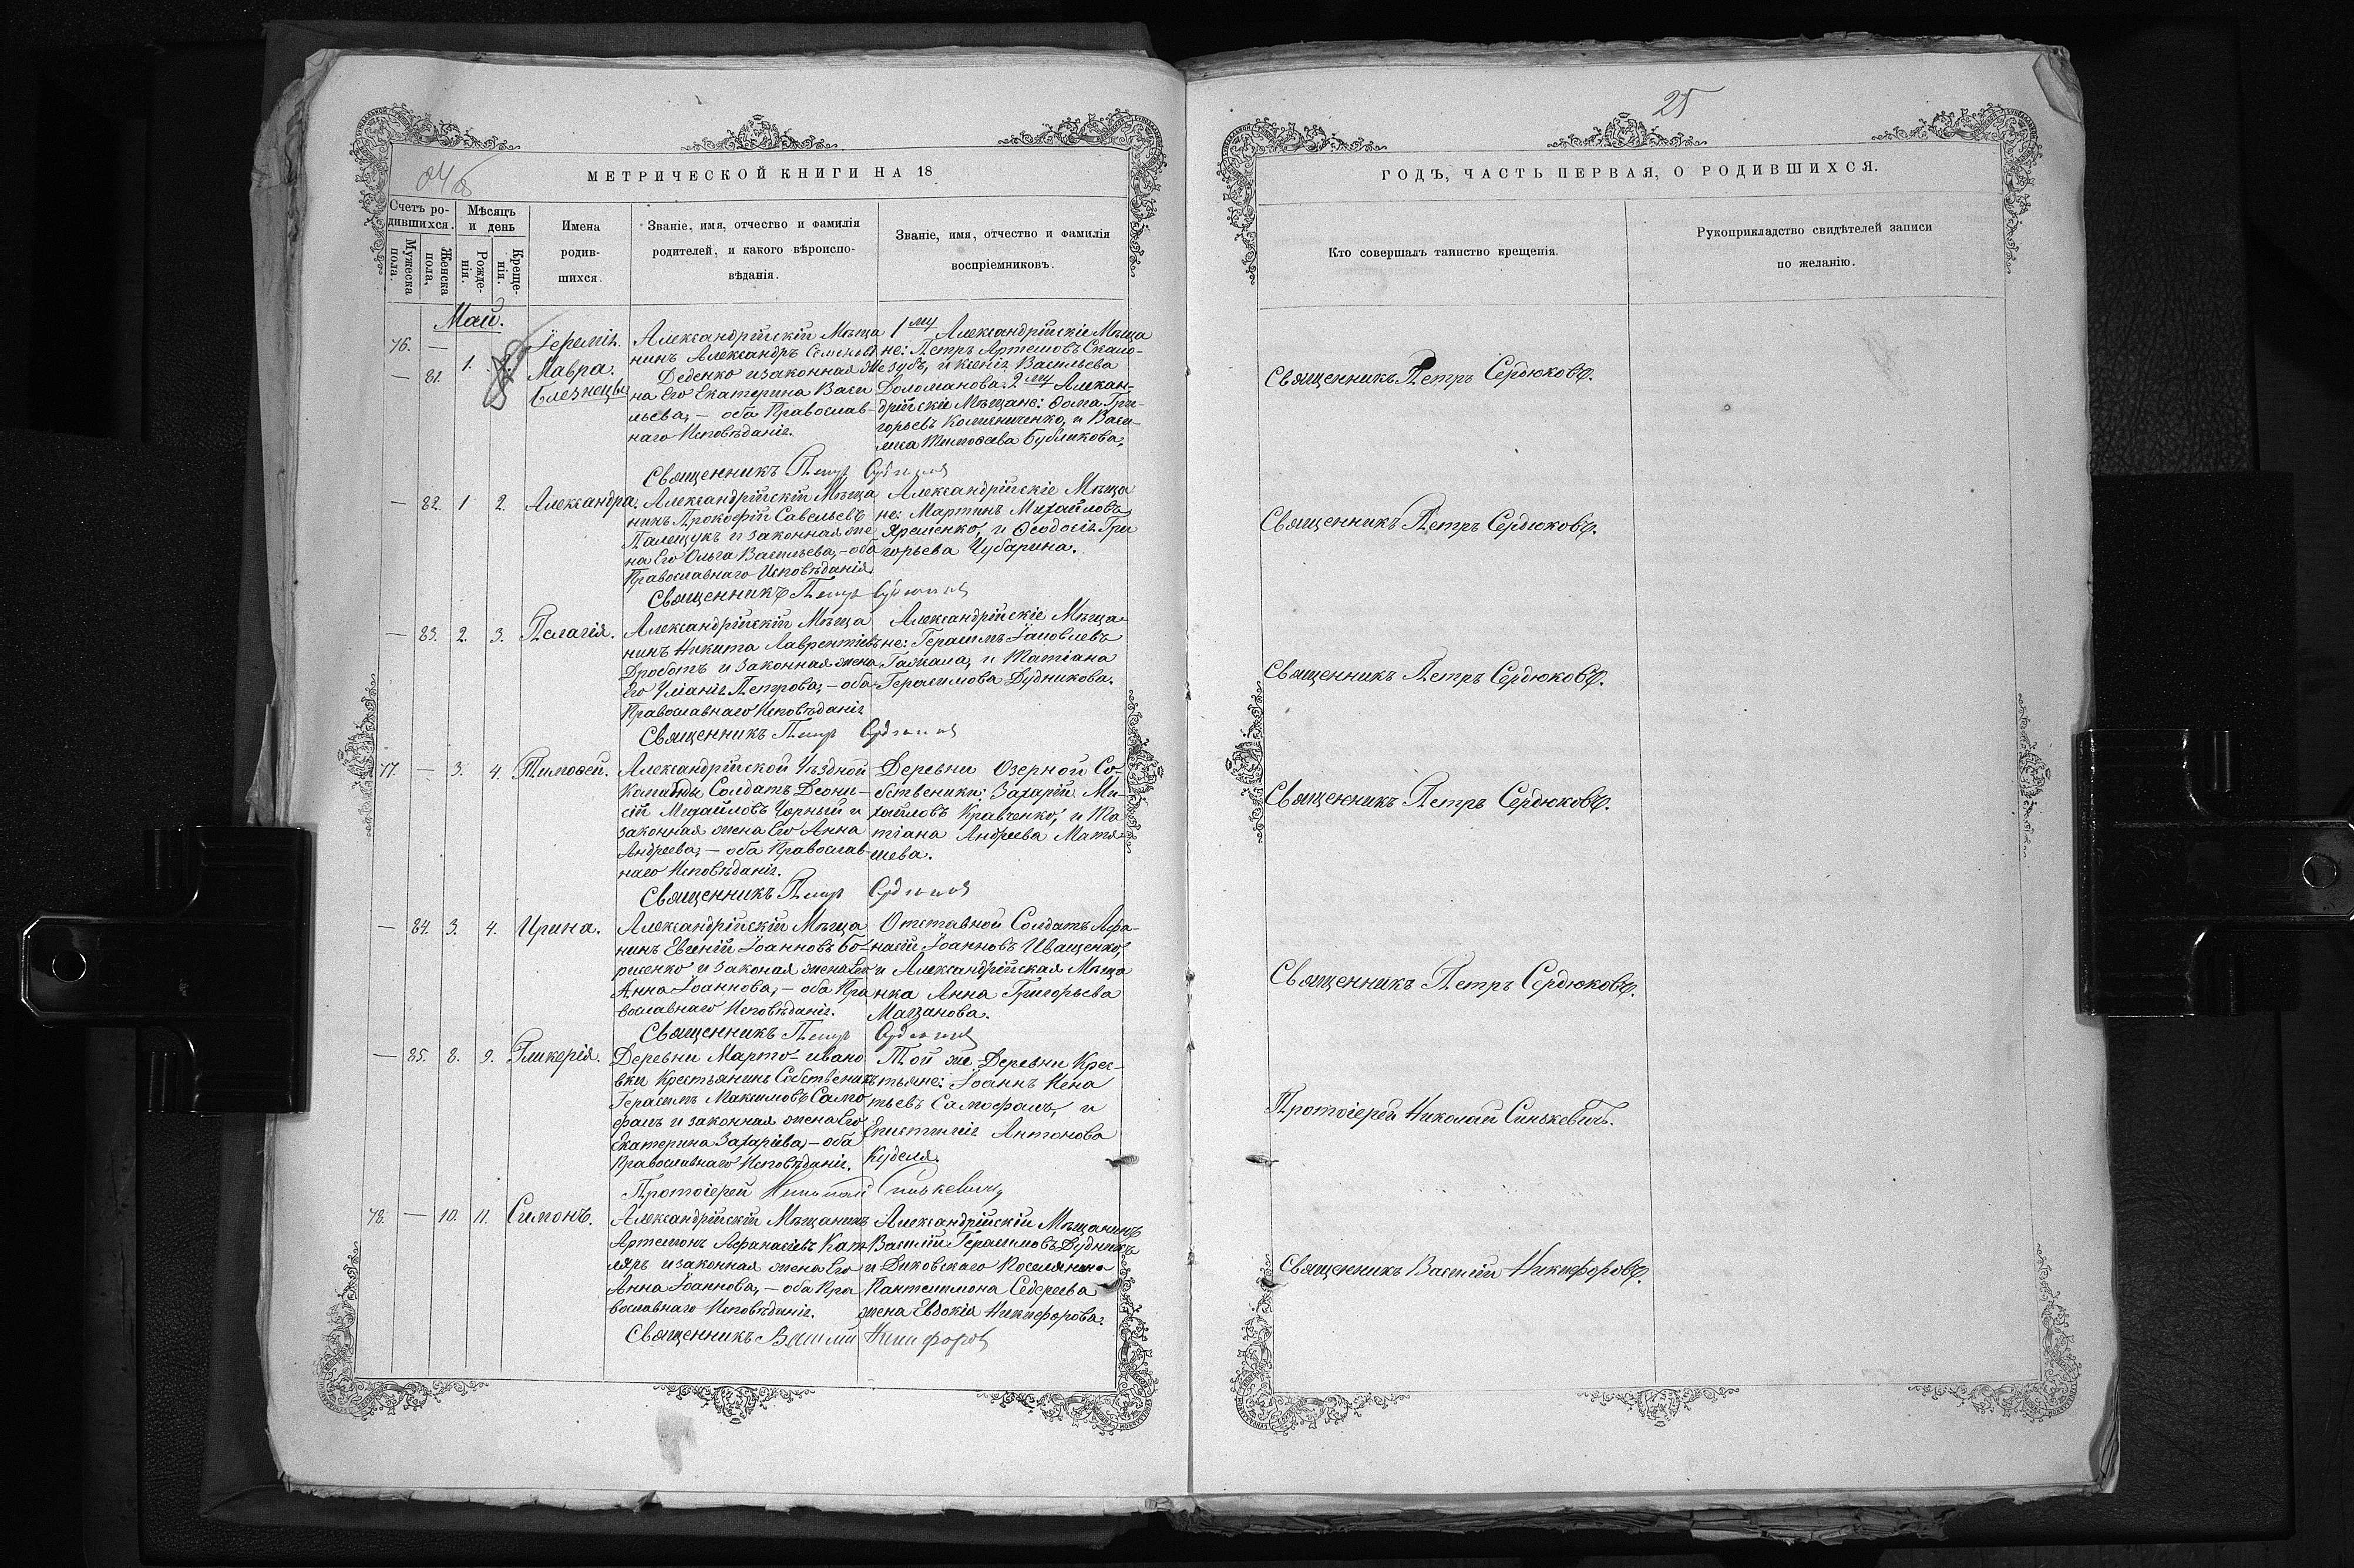 25
МЕТРИЧЕСКОЙ КНИГИ НА 18
Счетъ ро-
дившихся.
Мужеска
пола.
Женска
пола.
Мѣсяцъ
и день
Рожде-
нія.
Креще-
нія.
Имена
родив-
шихся.
Званіе, имя, отчество и фамилія
родителей, и какого вѣроиспо-
вѣданія.
Званіе, имя, отчество и фамилія
воспріемниковъ.
Май.
76. — 1.
— 81.
Іеремія.
Мавра.
Близнецы
Александрійскій Мѣща
нинъ Александръ Семеновъ
Деденко и законная же
на Его Екатерина Васи
льева, — оба Православ-
наго Исповѣданія.
1му Александрійскіе Мѣща
не: Петръ Артемовъ Скало-
зубъ, и Ксенія Васильева
Доломанова. 2му Алексан-
дрійскіе Мѣщане: Ѳома Гри-
горьевъ Коменниченко, и Васи-
лиса Тимоѳеева Бубликова.
Священникъ Петръ Сердюковъ
— 82. 1 2. Александра.
Александрійскій Мѣща
нинъ Прокофій Савельевъ
Палещукъ и законная же
на Его Ольга Васильева, — оба
Православнаго Исповѣданія.
Александрійскіе Мѣща
не: Мартинъ Михайловъ
Яременко, и Ѳеодосія Гри
горьева Чубарина.
Священникъ Петръ Сердюковъ
— 83. 2. 3. Пелагія.
Александрійскій Мѣща
нинъ Никита Лаврентіевъ
Дроботъ и законная жена
Его Уліанія Петрова, — оба
Православнаго Исповѣданія
Александрійскіе Мѣща-
не: Герасимъ Іаковлевъ
Гажала, и Татіана
Герасимова Дудникова.
Священникъ Петръ Сердюковъ
77. — 3. 4. Тимоѳей.
Александрійской Уѣздной
Команды Солдатъ Діони-
сій Михайловъ Чорный и
законная жена Его Анна
Андреева, — оба Православ-
наго Исповѣданія.
Деревни Озерной Со-
бственики: Захарій Ми-
хайловъ Кравченко, и Та
тіана Андреева Матя-
шева.
Священникъ Петръ Сердюковъ
— 84. 3. 4. Ирина.
Александрійскій Мѣща
нинъ Евгеній Іоанновъ Бо-
рисенко и законая жена Его
Анна Іоаннова, — оба Пра
вославнаго Исповѣданія.
Отставной Солдатъ Афа-
насій Іоанновъ Иващенко,
и Александрійская Мѣща
нка Анна Григорьева
Мазанова.
Священникъ Петръ Сердюковъ
— 85. 8. 9. Гликерія.
Деревни Марто-ивано
вки Крестьянинъ Собственикъ
Герасимъ Максимовъ Само
фалъ и законная жена Его
Екатерина Захаріева, — оба
Православнаго Исповѣданія.
Той же Деревни Крес-
тьяне: Іоаннъ Игна
тьевъ Самофалъ, и
Епистимія Антонова
Куделя.
Протоіерей Николай Синькевичъ
78. — 10. 11. Симонъ.
Александрійскій Мѣщанинъ
Артемонъ Афанасіевъ Кат-
ляръ и законная жена Его
Анна Іоаннова, — оба Пра
вославнаго Исповѣданія.
Александрійскій Мѣщанинъ
Василій Герасимовъ Дудникъ
и Диковскаго Поселянина
Пантелимона Седерева
жена Евдокія Никифорова.
Священникъ Василій Никифоровъ
ГОДЪ, ЧАСТЬ ПЕРВАЯ, О РОДИВШИХСЯ.
Кто совершалъ таинство крещенія.
Рукоприкладство свидѣтелей записи
по желанію.
Священникъ Петръ Сердюковъ.
Священникъ Петръ Сердюковъ.
Священникъ Петръ Сердюковъ.
Священникъ Петръ Сердюковъ.
Священникъ Петръ Сердюковъ.
Протоіерей Николай Синькевичъ.
Священникъ Василій Никифоровъ.